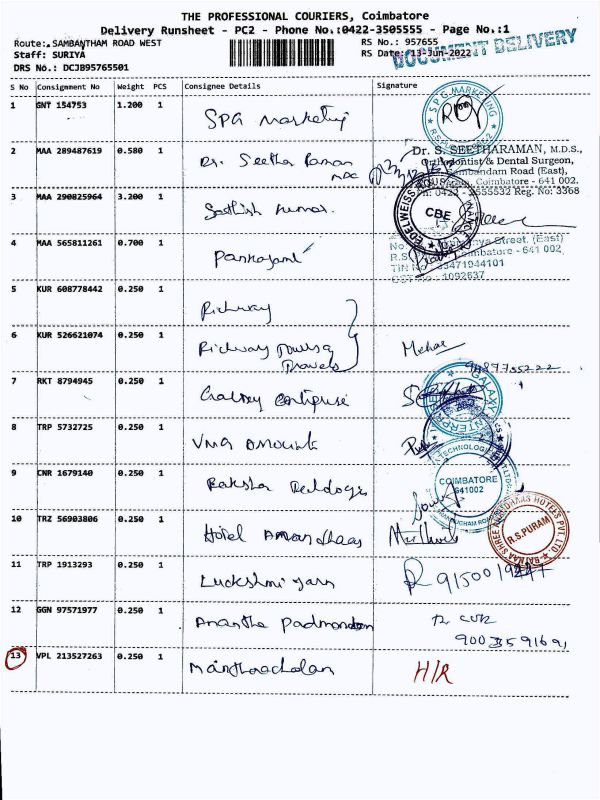 THE PROFESSIONAL COURIERS, Coimbatore
Delivery Runsheet - PC2 - Phone No.:0422-3505555 - Page No.:1
Route: SAMBANTHAM ROAD WEST
RS No.: 957655
Staff: SURIYA
RS Date: 13-Jun-2022
DOCUMENT DELIVERY
DRS No.: DCJB95765501
S No Consignment No Weight PCS Consignee Details Signature
1 GNT 154753 1.200 1 SPG Marketing
S.P.G. MARKETING
2 MAA 289487619 0.580 1 Dr. Seetha Raman
MDC
Dr. S. SEETHARAMAN, M.D.S.,
Orthodontist & Dental Surgeon,
Sambandam Road (East),
Coimbatore - 641 002.
Reg. No: 3368
3 MAA 290825964 3.200 1 Sathish Kumar.
EDELWEISS HOUSE
CBE
4 MAA 565811261 0.700 1 Pankajam
Street. (East)
Coimbatore - 641 002,
TIN No : 33471944101
CST No : 1092637
5 KUR 608778442 0.250 1 Richway
6 KUR 526621074 0.250 1 Richway Tours &
Travels
7 RKT 8794945 0.250 1 Galaxy Enterprise
GALAXY ENTERPRISES
8 TRP 5732725 0.250 1 VMG
9 CNR 1679140 0.250 1 Raksha
TECHNOLOGIES
COIMBATORE
641002
10 TRZ 56903806 0.250 1 Hotel Anandhaas
RATNAA SHREE ANANDHAAS HOTELS PVT. LTD
R.S.PURAM
11 TRP 1913293 0.250 1 Luckshmi yarn
12 GGN 97571977 0.250 1 Anantha Padmanaban
13 VPL 213527263 0.250 1
H/R